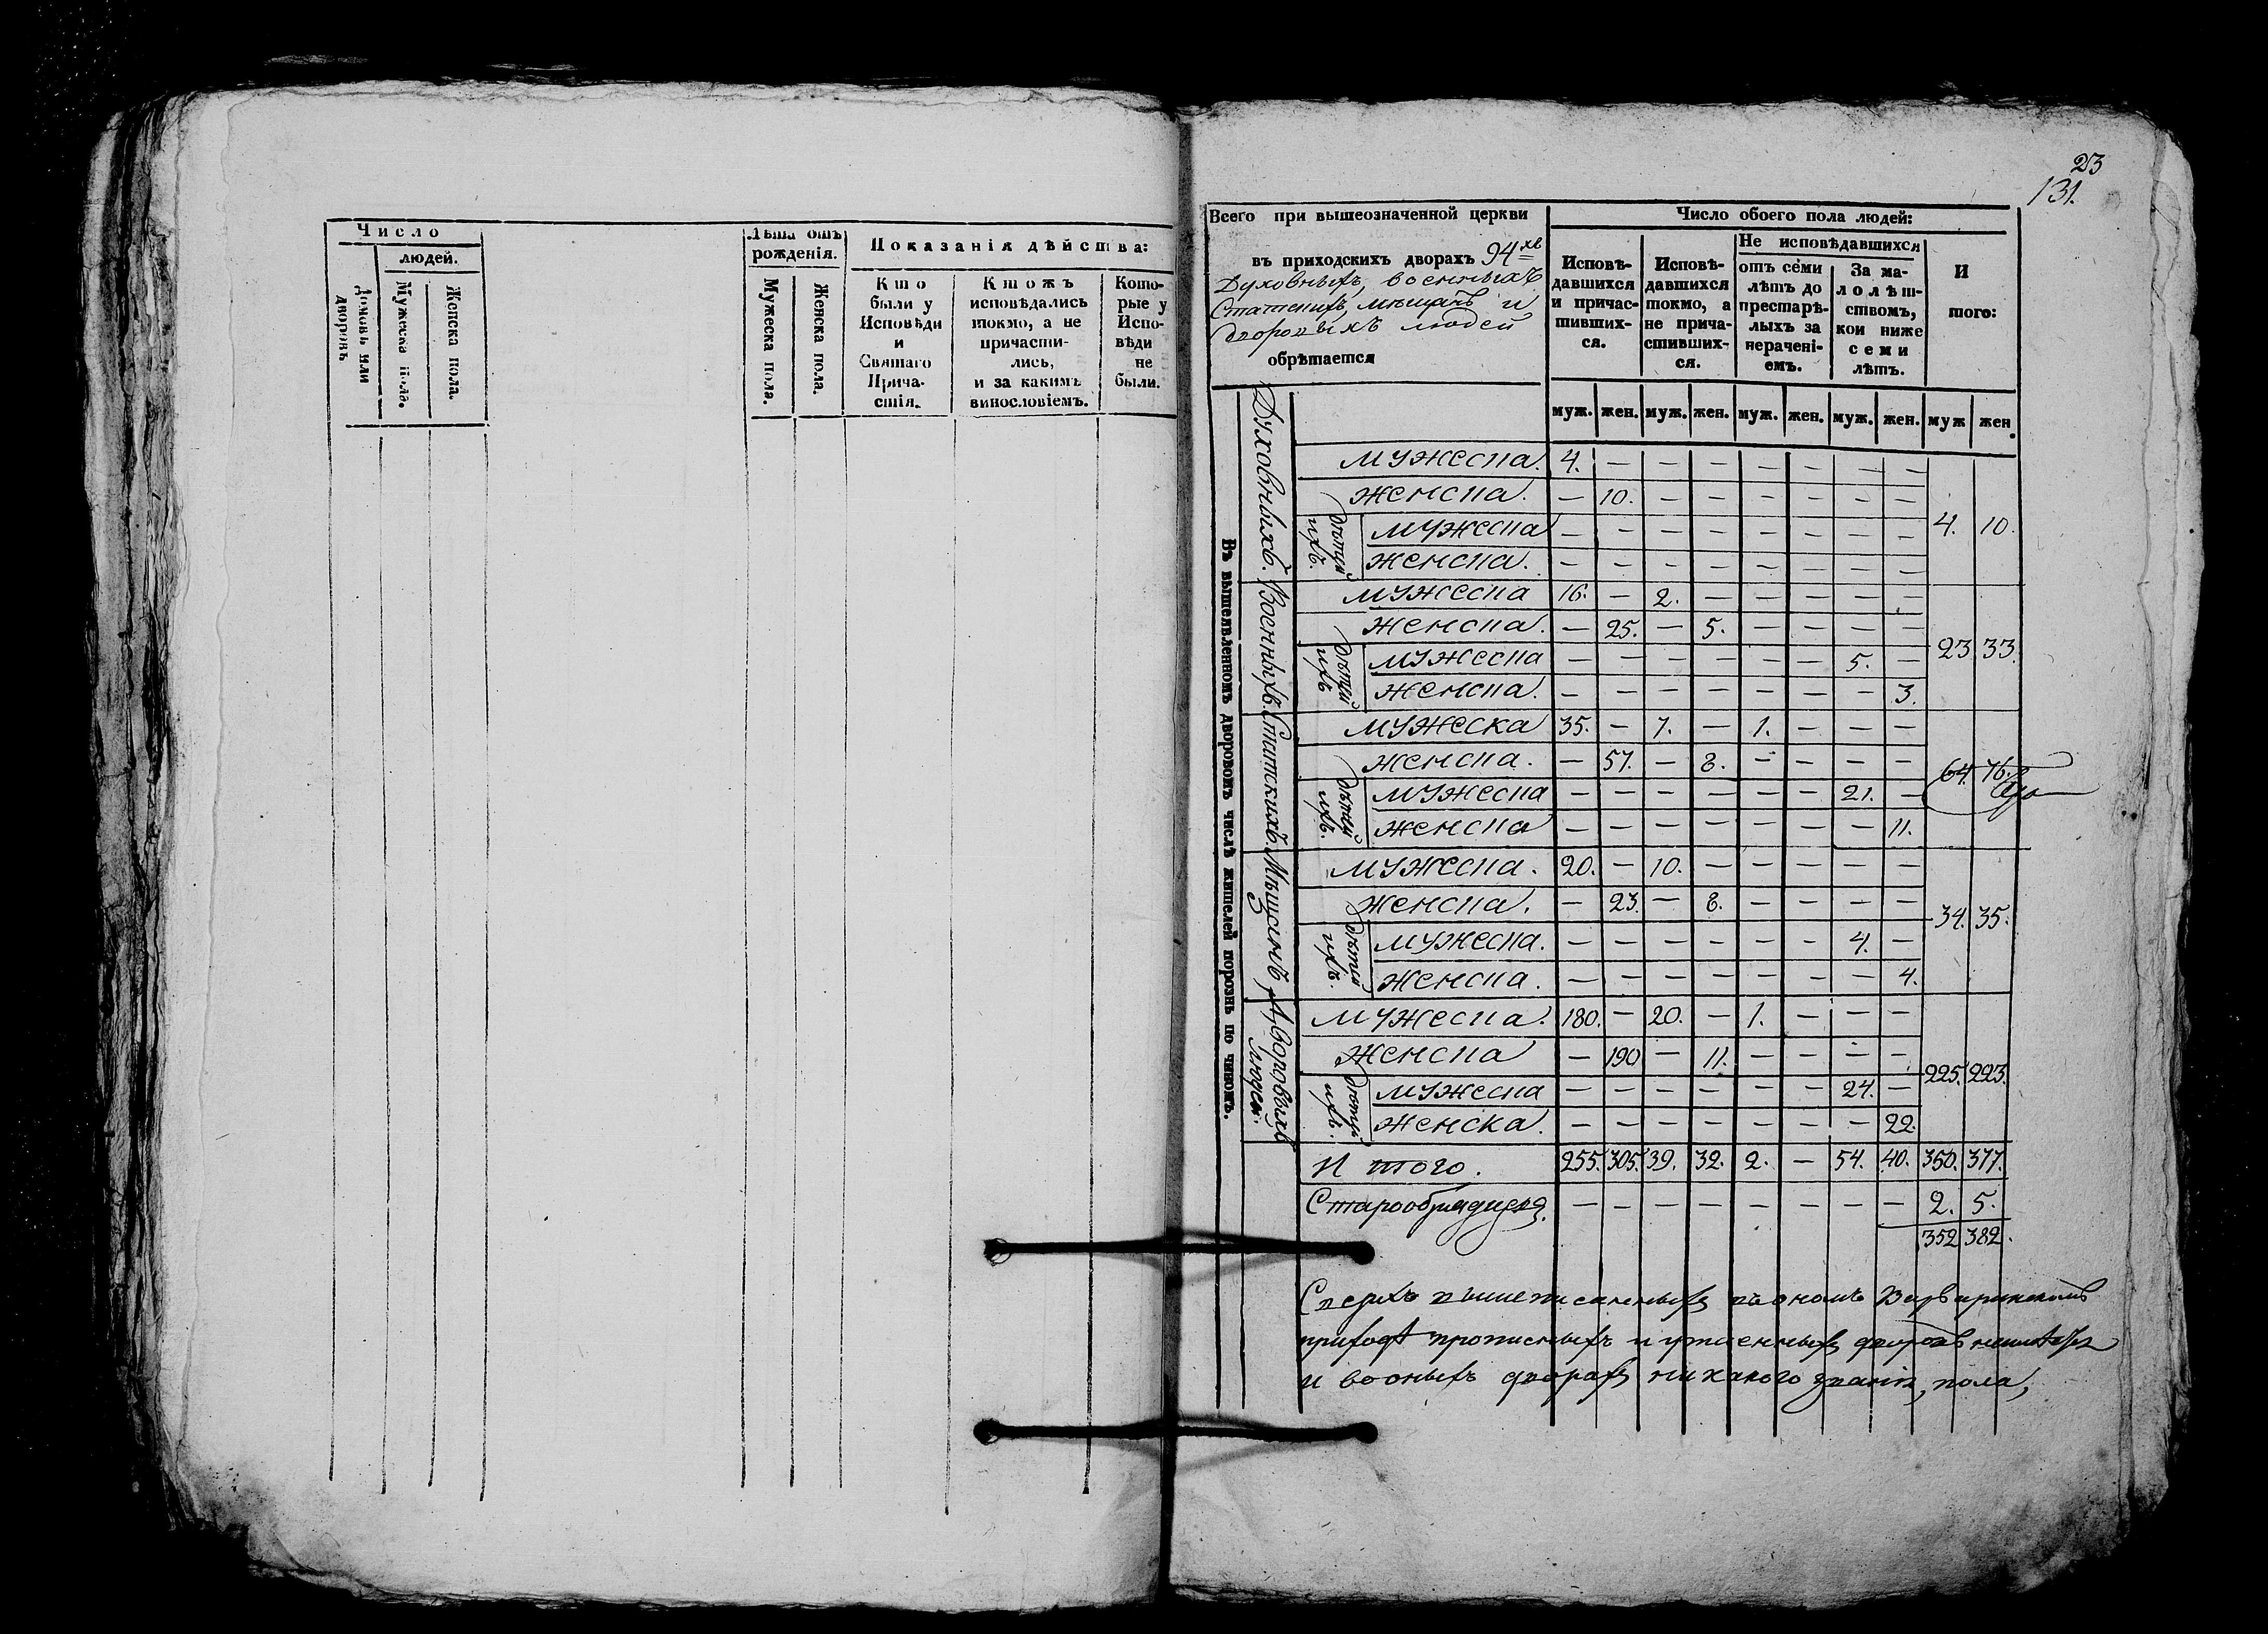 Число
людей.
Домовъ или дворовъ
Мужеска пола.
Женска пола.
Лѣта отъ рожденія.
Мужеска пола.
Женска пола.
Показанія дѣйства:
Кто были у Исповѣди и Святаго Причастія.
Ктожъ исповѣдались токмо, а не причастились, и за какимъ винословіемъ.
Которые у Исповѣди не были.
23
131.
Всего при вышеозначенной церкви
въ приходскихъ дворахъ 94хъ
Духовныхъ, военныхъ
Статскихъ, мѣщанъ и
дворовыхъ людей
обрѣтается
Число обоего пола людей:
Исповѣдавшихся и причастившихся.
Исповѣдавшихся токмо, а не причастившихся.
Не исповѣдавшихся
отъ семи лѣтъ до престарѣлыхъ за нераченіемъ.
За малолѣтствомъ, кои ниже семи лѣтъ.
И того:
муж. жен. муж. жен. муж. жен. муж. жен. муж жен.
Въ вышеявленномъ дворовомъ числѣ жителей порознь по чиномъ.
Духовныхъ.
мужеска. 4. — — — — — — —
женска. — 10. — — — — — —
дѣтей ихъ.
мужеска — — — — — — — —
женска. — — — — — — — —
4. 10.
Военныхъ.
мужеска 16. — 2. — — — — —
женска. — 25. — 5. — — — —
дѣтей ихъ
мужеска — — — — — — 5. —
женска. — — — — — — — 3.
23 33.
Статскихъ.
мужеска 35. — 7. — 1. — — —
женска. — 57. — 8. — — — —
дѣтей ихъ.
мужеска — — — — — — 21. —
женска — — — — — — — 11.
64. 76.
Мѣщанъ
мужеска. 20. — 10. — — — — —
женска. — 23. — 8. — — — —
дѣтей ихъ.
мужеска. — — — — — — 4. —
женска. — — — — — — — 4.
34. 35.
Дворовыхъ людей.
мужеска. 180. — 20. — 1. — — —
женска — 190 — 11. — — — —
дѣтей ихъ.
мужеска — — — — — — 24. —
женска. — — — — — — — 22.
225. 223.
И того. 255. 305. 39. 32. 2. — 54. 40. 350. 377.
— — — — — — — — 2. 5.
352 382.
Сверхъ вышеписанныхъ въ ономъ Варваринскомъ
приходѣ прописныхъ и утаенныхъ дворовъ
и въ оныхъ дворахъ никакого званія, пола,